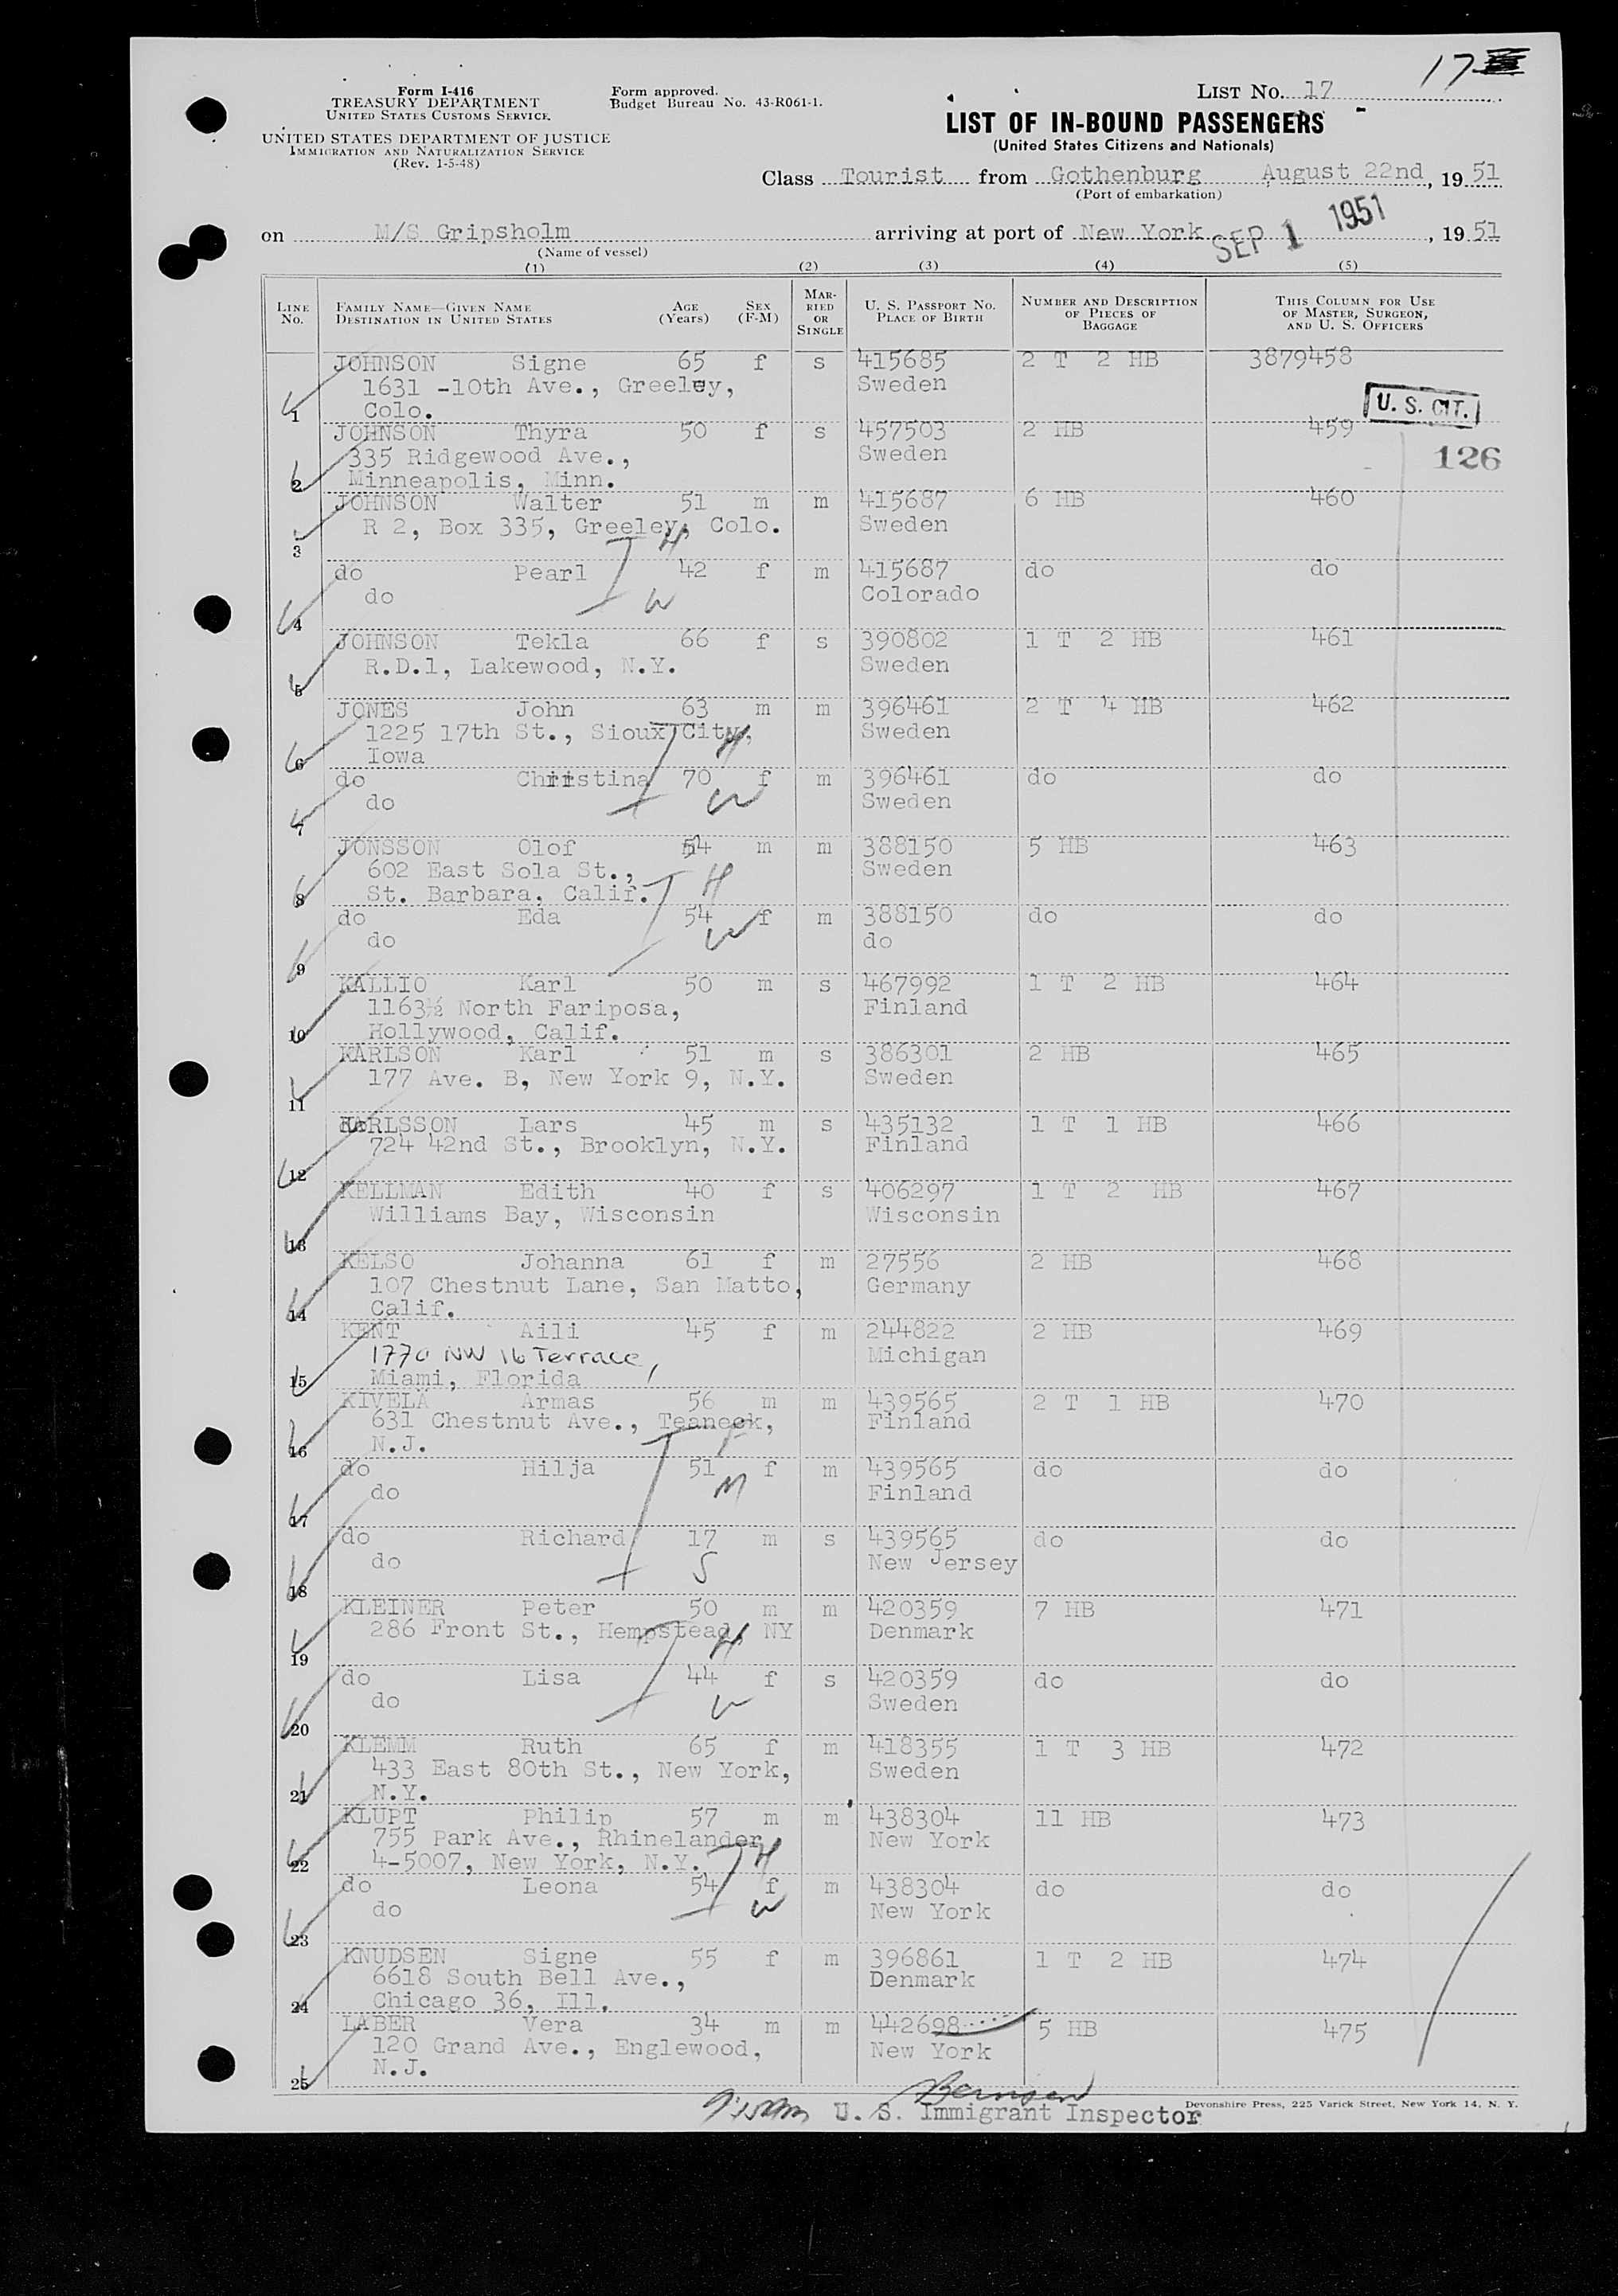 17
Form I-416
TREASURY DEPARTMENT
UNITED STATES CUSTOMS SERVICE
UNITED STATES DEPARTMENT OF JUSTICE
IMMIGRATION AND NATURALIZATION SERVICE
(Rev. 1-5-48)
Form approved.
Budget Bureau No. 43-R061-1.
LIST No. 17
LIST OF IN-BOUND PASSENGERS
(United States Citizens and Nationals)
Class Tourist from Gothenburg August 22nd, 1951
(Port of embarkation)
on M/S Gripsholm arriving at port of New York SEP 1 1951, 1951
(Name of vessel)
(1) (2) (3) (4) (5)
LINE No. FAMILY NAME—GIVEN NAME DESTINATION IN UNITED STATES AGE (Years) SEX (F-M) MARRIED OR SINGLE U. S. PASSPORT No. PLACE OF BIRTH NUMBER AND DESCRIPTION OF PIECES OF BAGGAGE THIS COLUMN FOR USE OF MASTER, SURGEON, AND U. S. OFFICERS
JOHNSON Signe 65 f s 415685 2 T 2 HB 3879458
1631 -10th Ave., Greeley, Sweden
1 Colo.
U. S. CIT.
JOHNSON Thyra 50 f s 457503 2 HB 459
335 Ridgewood Ave., Sweden 126
2 Minneapolis, Minn.
JOHNSON Walter 51 m m 415687 6 HB 460
R 2, Box 335, Greeley, Colo. Sweden
3 H
do Pearl 42 f m 415687 do do
do W Colorado
4
JOHNSON Tekla 66 f s 390802 1 T 2 HB 461
R.D.1, Lakewood, N.Y. Sweden
5
JONES John 63 m m 396461 2 T 4 HB 462
1225 17th St., Sioux City, H Sweden
6 Iowa
do Christina 70 f m 396461 do do
do W Sweden
7
JONSSON Olof 54 m m 388150 5 HB 463
602 East Sola St., Sweden
8 St. Barbara, Calif. H
do Eda 54 f m 388150 do do
do W do
9
KALLIO Karl 50 m s 467992 1 T 2 HB 464
1163½ North Fariposa, Finland
10 Hollywood, Calif.
KARLSON Karl 51 m s 386301 2 HB 465
177 Ave. B, New York 9, N.Y. Sweden
11
KARLSSON Lars 45 m s 435132 1 T 1 HB 466
724 42nd St., Brooklyn, N.Y. Finland
12
KELLMAN Edith 40 f s 406297 1 T 2 HB 467
Williams Bay, Wisconsin Wisconsin
13
KELSO Johanna 61 f m 27556 2 HB 468
107 Chestnut Lane, San Matto, Germany
14 Calif.
KENT Aili 45 f m 244822 2 HB 469
1770 NW 16 Terrace, Michigan
15 Miami, Florida
KIVELÄ Armas 56 m m 439565 2 T 1 HB 470
631 Chestnut Ave., Teaneck, Finland
16 N.J. F
do Hilja 51 f m 439565 do do
do M Finland
17
do Richard 17 m s 439565 do do
do S New Jersey
18
KLEINER Peter 50 m m 420359 7 HB 471
286 Front St., Hempstead, NY H Denmark
19
do Lisa 44 f s 420359 do do
do W Sweden
20
KLEMM Ruth 65 f m 418355 1 T 3 HB 472
433 East 80th St., New York, Sweden
21 N.Y.
KLUPT Philip 57 m m 438304 11 HB 473
755 Park Ave., Rhinelander New York
22 4-5007, New York, N.Y. H
do Leona 54 f m 438304 do do
do W New York
23
KNUDSEN Signe 55 f m 396861 1 T 2 HB 474
6618 South Bell Ave., Denmark
24 Chicago 36, Ill.
LABER Vera 34 m m 442698 5 HB 475
120 Grand Ave., Englewood, New York
25 N.J.
U. S. Immigrant Inspector
Devonshire Press, 225 Varick Street, New York 14, N. Y.